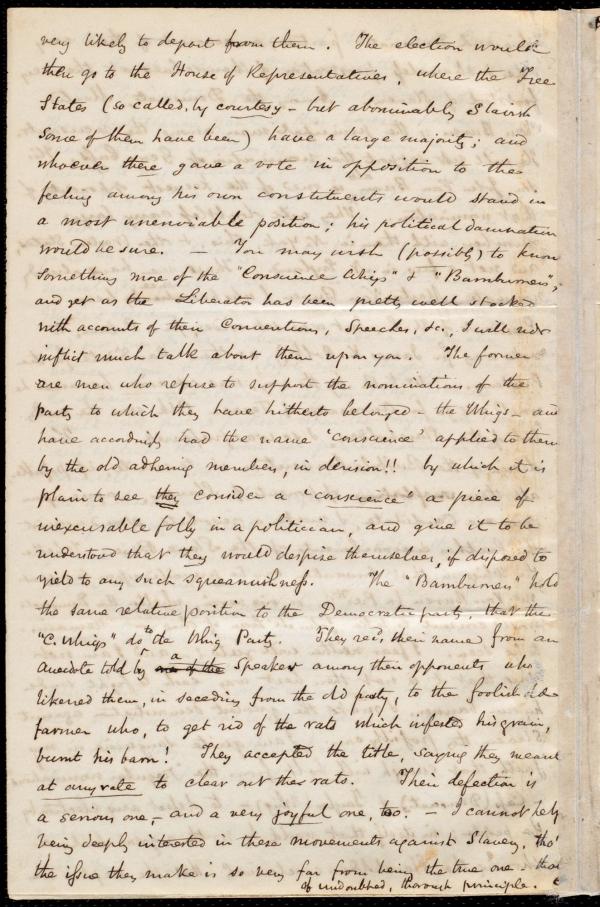 very likely to depart from them. The election would
then go to the House of Representatives, where the Free
States (so called, by courtesy - but abominably Slavish
some of them have been) have a large majority; and
whoever there gave a vote in opposition to the
feeling among his own constituents would stand in
a most unenviable position; his political damnation
would be sure. — You may wish (possibly) to know
something more of the "Conscience Whigs" & "Barnburners",
and yet as the Liberator has been pretty well stocked
with accounts of their Conventions, Speeches, &c., I will not
inflict much talk about them upon you. The former
are men who refuse to support the nominations of the
party to which they have hitherto belonged - the Whigs - and
have accordingly had the name 'conscience' applied to them
by the old adhering members, in derision!! by which it is
plain to see they consider a 'conscience' a piece of
inexcusable folly in a politician, and give it to be
understood that they would despise themselves, if disposed to
yield to any such squeamishness. The "Barnburners" hold
the same relative position to the Democratic party, that the
"C. Whigs" do to the Whig Party. They recd. their name from an
anecdote told by a speaker among their opponents who
likened them, in seceding from the old party, to the foolish
farmer who, to get rid of the rats which infested his grain,
burnt his barn! They accepted the title, saying they meant
at any rate to clear out the rats. Their defection is
a serious one, - and a very joyful one, too. — I cannot help
being deeply interested in these movements against Slavery, tho'
the issue they make is so very far from being the true one - that
of undoubted, thorough principle.